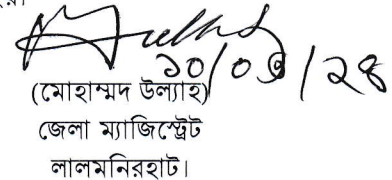 ১০/০৩/২৪
(মোহাম্মদ উল্যাহ)
জেলা ম্যাজিস্ট্রেট
লালমনিরহাট।